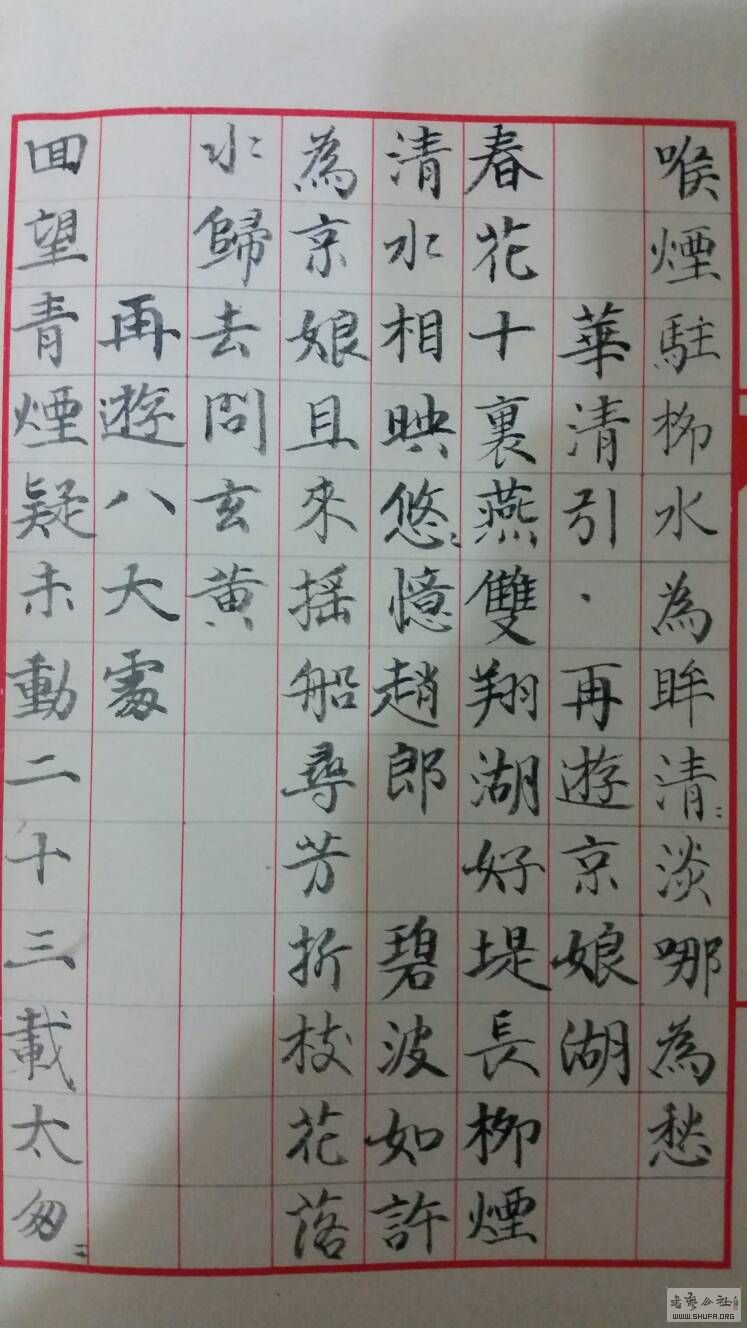 喉煙駐柳水為眸清〻淡哪為愁
華清引·再遊京娘湖
春花十裏燕雙翔湖好堤長柳煙
清水相映悠〻憶趙郎 碧波如許
為京娘且來搖船尋芳折枝花落
水歸去問玄黃
再遊八大處
回望青煙疑未動二十三載太匆〻
WWW.SHUFA.ORG